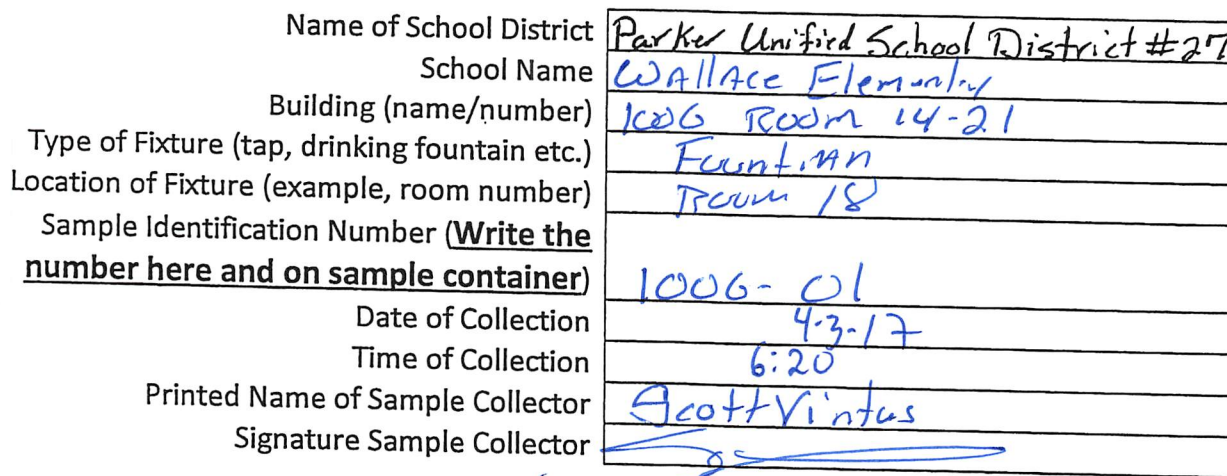 Name of School District Parker Unified School District #27
School Name Wallace Elementry
Building (name/number) 1006 Room 14-21
Type of Fixture (tap, drinking fountain etc.) Fountian
Location of Fixture (example, room number) Room 18
Sample Identification Number (Write the
number here and on sample container) 1006-01
Date of Collection 4-3-17
Time of Collection 6:20
Printed Name of Sample Collector Scott Vintus
Signature Sample Collector